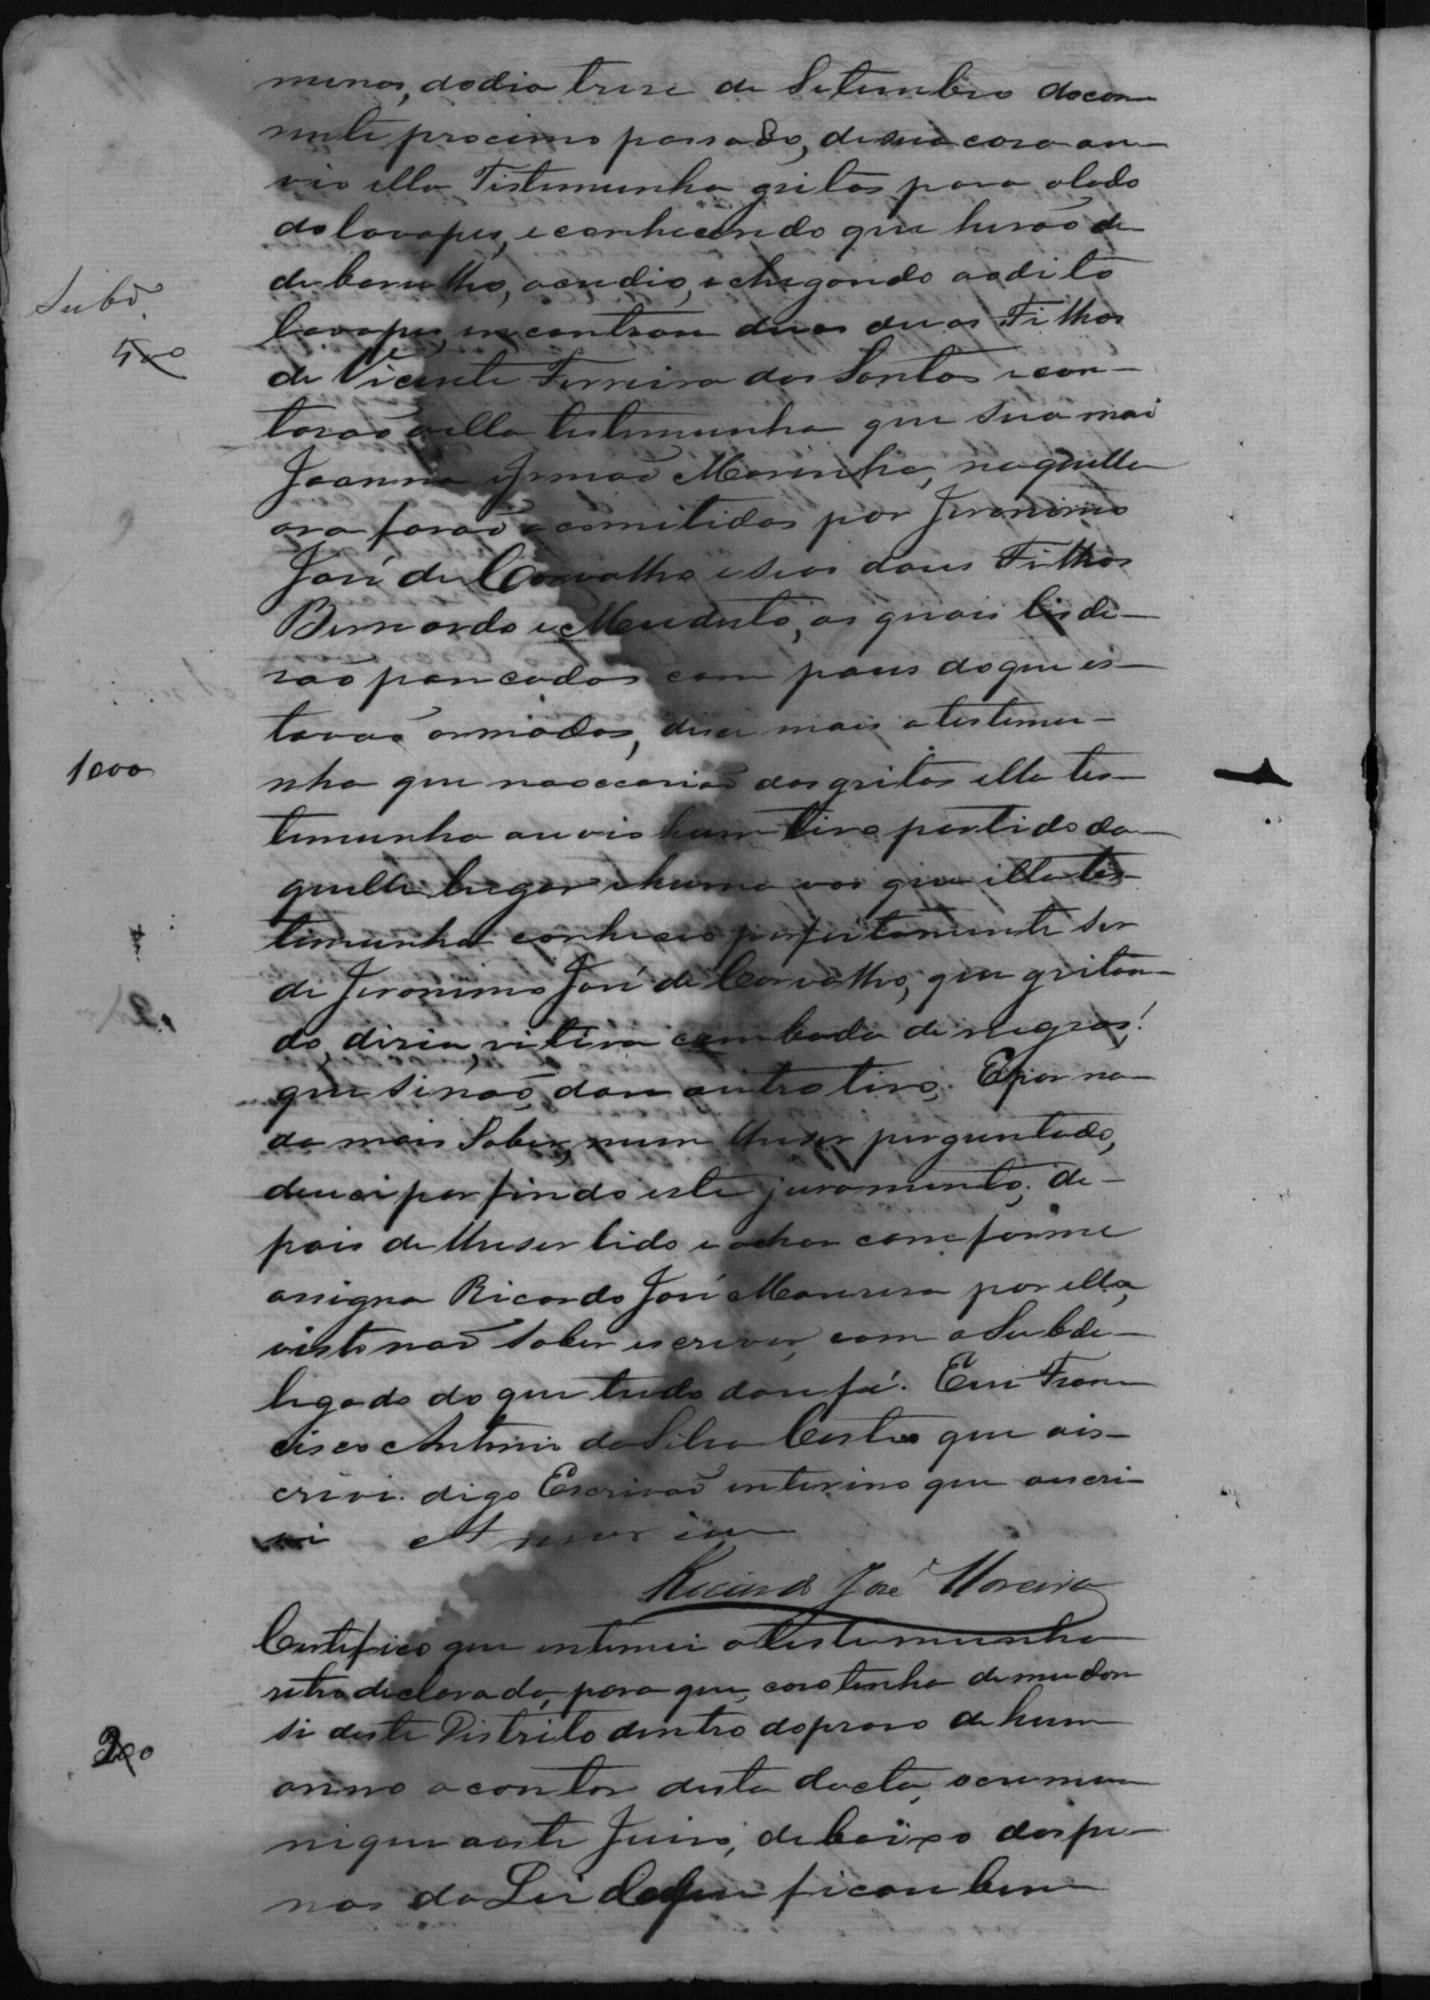 menos, do dia trese de Setembro docor
rente procimo passado, de sua casa ou
vio ella Testemunha gritos para olado
do lavapes, e conhecendo que herão de
de barulho, acudio, e chegando ao dito
lavapes, encontrou duas duos Filhos
de Vicente Ferreira dos Santos e con-
tarão a ella testemunha que sua mai
Joanna e Irmão Marinho, naquella
ora forão acomitidos por Jeronimo
José de Carvalho e seos dous Filhos
Bernardo e Modesto, os quais lis de-
rão pancadas com paus do que es-
tavão armados, dise mais a testemu-
nha que na occarião dos gritos ella tes-
temunha ouvio hum tiro partido da-
quelle lugar e huma vos que ella tes-
temunha conheceo perfeitamente ser
de Jeronimo José de Carvalho, que gritan-
do, disia, retira cambada de negros!
que sinão, dou outro tiro. E por na-
da mais Saber, nem lheser perguntado,
deuci por findo este juramento, de-
pois de lheser lido e achar comforme
assigna Ricardo José Moureira por ella,
visto não Saber escrever, com o Subde-
legado do que tudo dou fé. Eu Fran
cisco Antonio da Silva Castro que ois-
crivi. digo Escrivão enterino que oescri-
vi Amorim
Ricardo José Moreira
Certifico que entemei a testemunha
retro declarada, para que, caso tenha de mudar
si deste Distrito dentro do praso de hum
anno a contar desta dacta, ocumu
nique aeste Juiso, debaixo das pe-
nas da Lei do que ficou bem
Subdº
500
1000
200